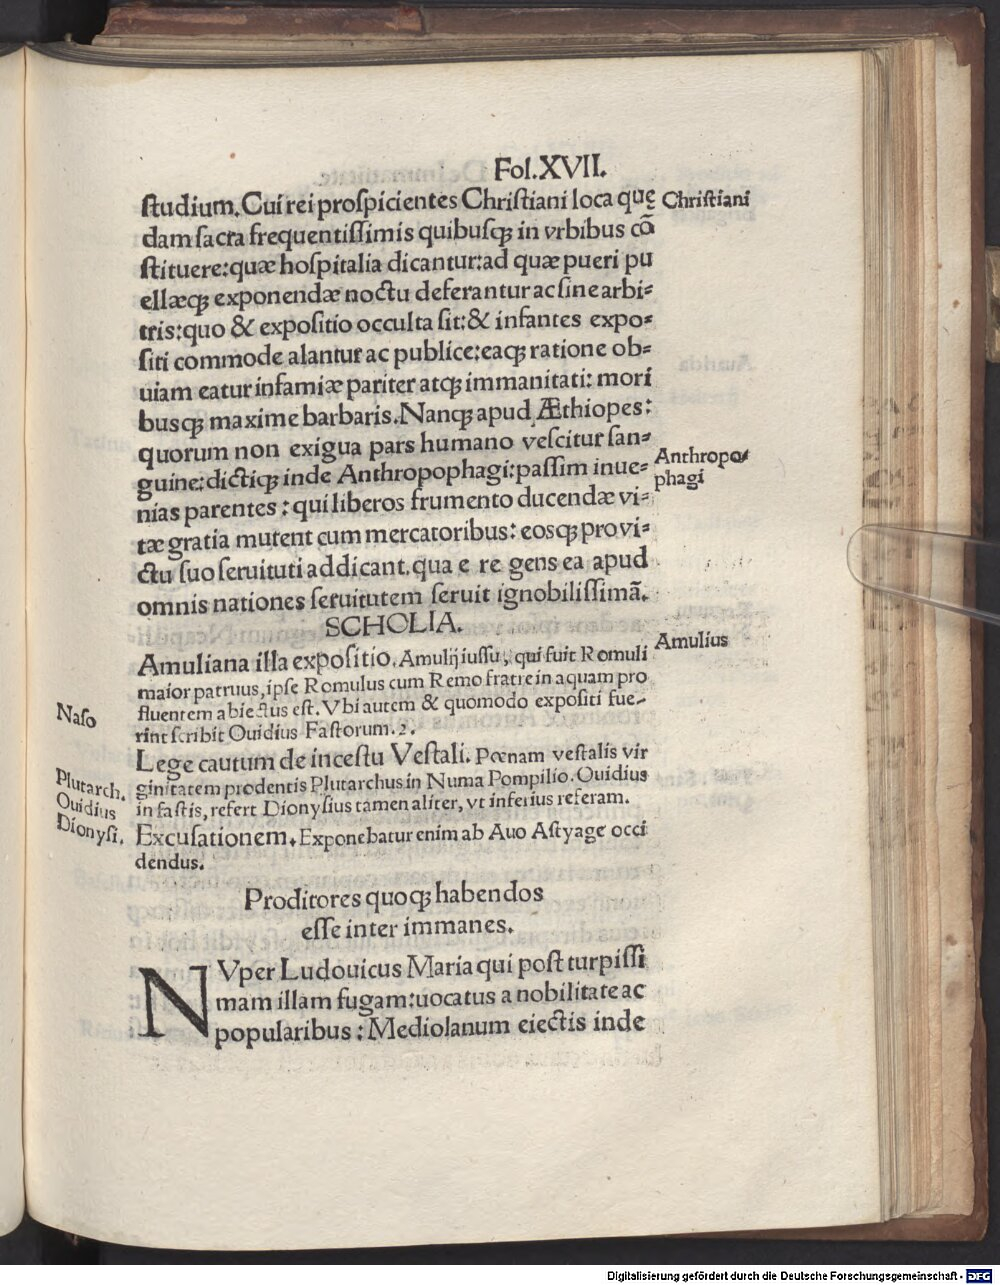 Fol.XVII.
studium.Cui rei prospicientes Christiani loca quę
Christiani
dam sacra frequentissimis quibusq; in vrbibus cō
stituere:quæ hospitalia dicantur:ad quæ pueri pu
ellæq; exponendæ noctu deferantur ac sine arbi-
tris:quo & expositio occulta sit:& infantes expo-
siti commode alantur ac publice:eaq; ratione ob-
uiam eatur infamiæ pariter atq; immanitati: mori
busq; maxime barbaris.Nanq; apud Æthiopes:
quorum non exigua pars humano vescitur san-
guine:dictiq; inde Anthropophagi:passim inue-
Anthropo-
phagi
nias parentes : qui liberos frumento ducendæ vi-
tæ gratia mutent cum mercatoribus: eosq; pro vi-
ctu suo seruituti addicant.qua e re gens ea apud
omnis nationes seruitutem seruit ignobilissimā.
SCHOLIA.
Amuliana illa expositio.Amulij iussu, qui fuit Romuli
Amulius
maior patruus,ipse Romulus cum Remo fratre in aquam pro
fluentem abiectus est.Vbi autem & quomodo expositi fue-
Naso
rint scribit Ouidius Fastorum.2.
Lege cautum de incestu Vestali. Pœnam vestalis vir
ginitatem prodentis Plutarchus in Numa Pompilio.Ouidius
Plutarch.
Ouidius
in fastis, refert Dionysius tamen aliter, vt inferius referam.
Dionysi.
Excusationem.Exponebatur enim ab Auo Astyage occi
dendus.
Proditores quoq; habendos
esse inter immanes.
NVper Ludouicus Maria qui post turpissi
mam illam fugam:uocatus a nobilitate ac
popularibus : Mediolanum eiectis inde
Digitalisierung gefördert durch die Deutsche Forschungsgemeinschaft - DFG